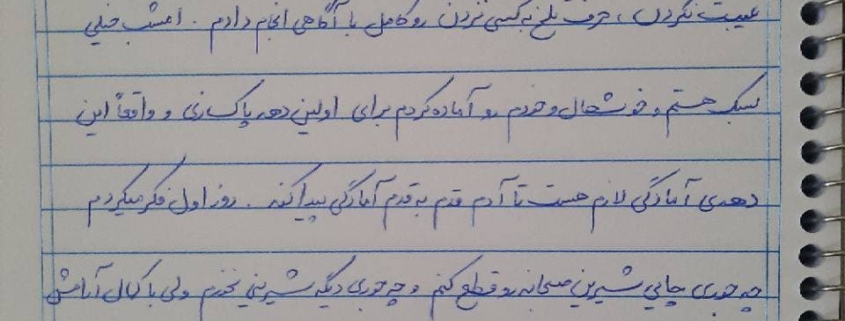 غیبت نکردن، حرف تلخ به کسی نزدن رو کامل با آگاهی انجام دادم. امشب خیلی
سبک هستم و خوشحال و خودم رو آماده کردم برای اولین دهه پاکسازی و واقعاً این
دهه‌ی آمادگی لازم هست تا آدم قدم به قدم آمادگی پیدا کنه. روز اول فکر میکردم
چه جوری چایی شیرین صبحانه رو قطع کنم و چه جوری دیگه شیرینی نخورم ولی با کمال آرامش